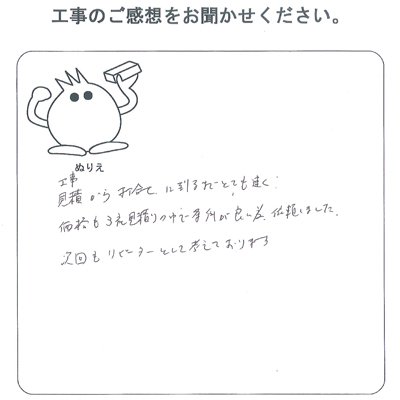 工事のご感想をお聞かせください。
ぬりえ
工事
見積から打合せ に到るまでとても速く
価格も3社見積りの中で 条件が良い為、依頼しました。
次回もリピーターとして考えております